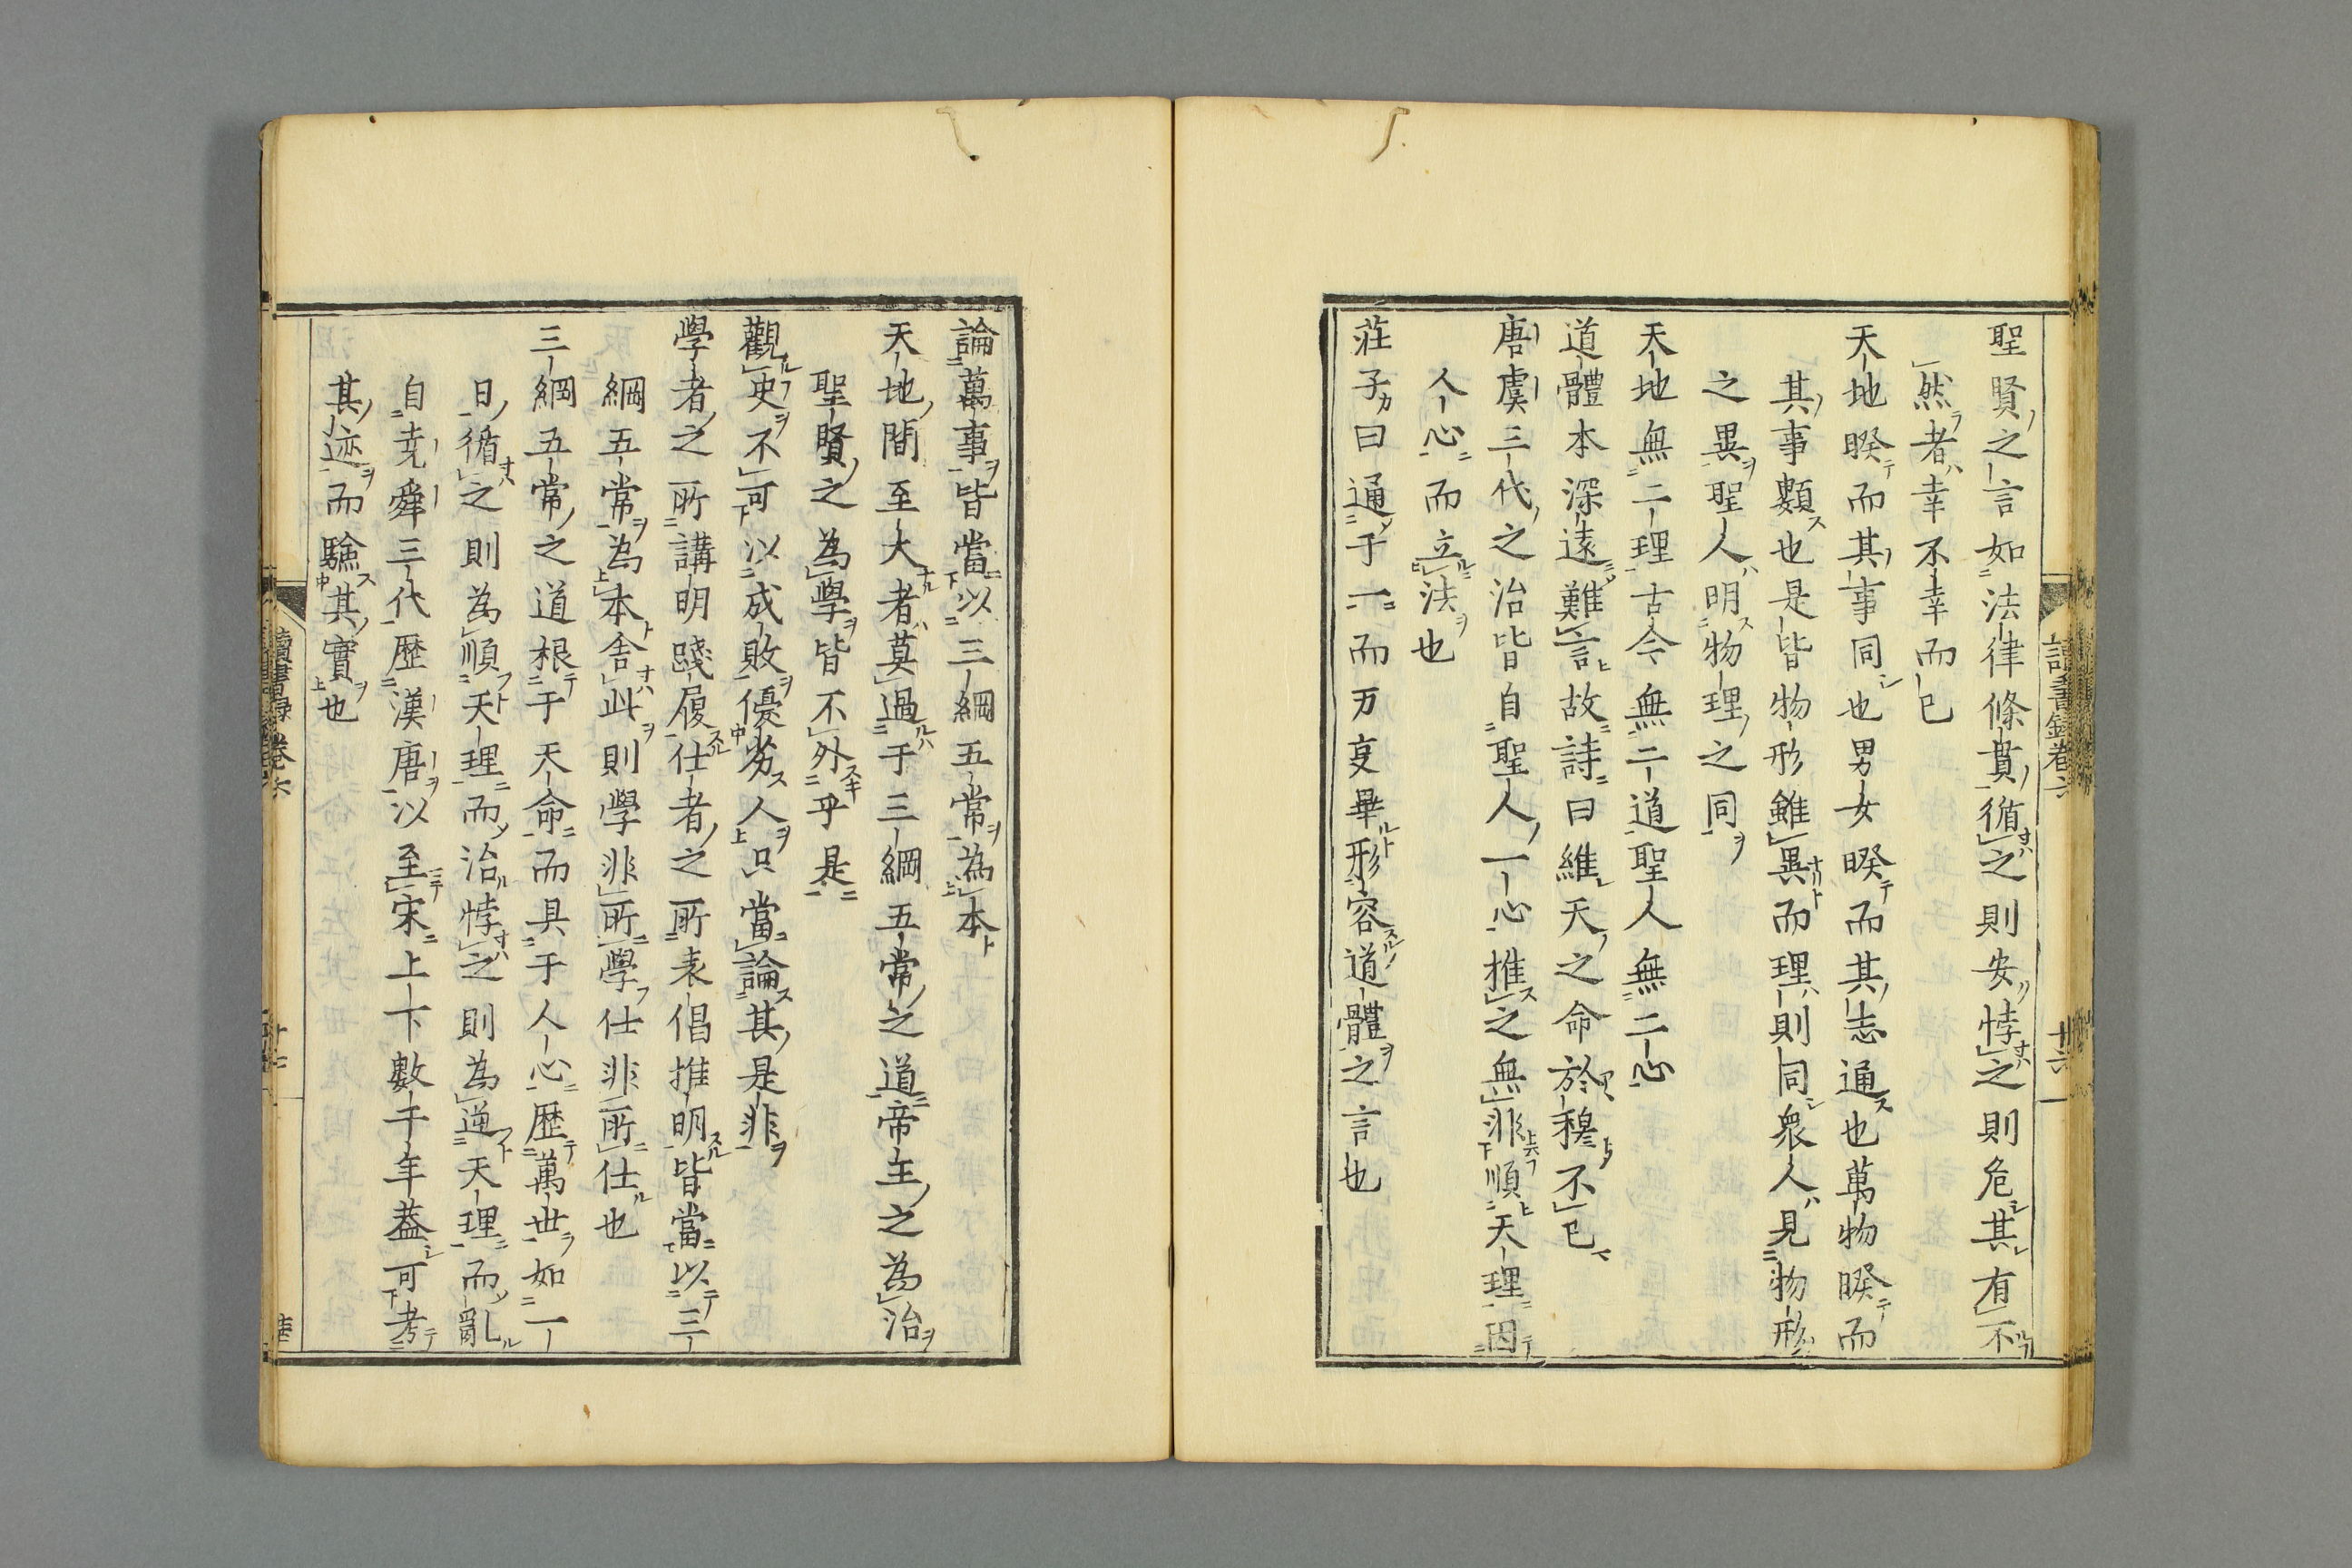 聖賢之言如法律條貫循之則安悖之則危其有不
然者幸不幸而已
天地睽而其事同也男女睽而其志通也萬物睽而
其事類也是皆物形雖異而理則同衆人見物形
之異聖人明物理之同
天地無二理古今無二道聖人無二心
道體本深遠難言故詩曰維天之命於穆不已
唐虞三代之治皆自聖人一心推之無非順天理因
人心而立法也
莊子曰通于一而万事畢形容道體之言也
讀書録卷六
十六
論萬事皆當以三綱五常為本
天地間至大者莫過于三綱五常之道帝王之為治
聖賢之為學皆不外乎是
觀史不可以成敗優劣人只當論其是非
學者之所講明踐履仕者之所表倡推明皆當以三
綱五常為本舍此則學非所學仕非所仕也
三綱五常之道根于天命而具于人心歷萬世如一
日循之則為順天理而治悖之則為逆天理而亂
自堯舜三代歷漢唐以至宋上下數千年葢可考
其迹而驗其實也
讀書録卷六